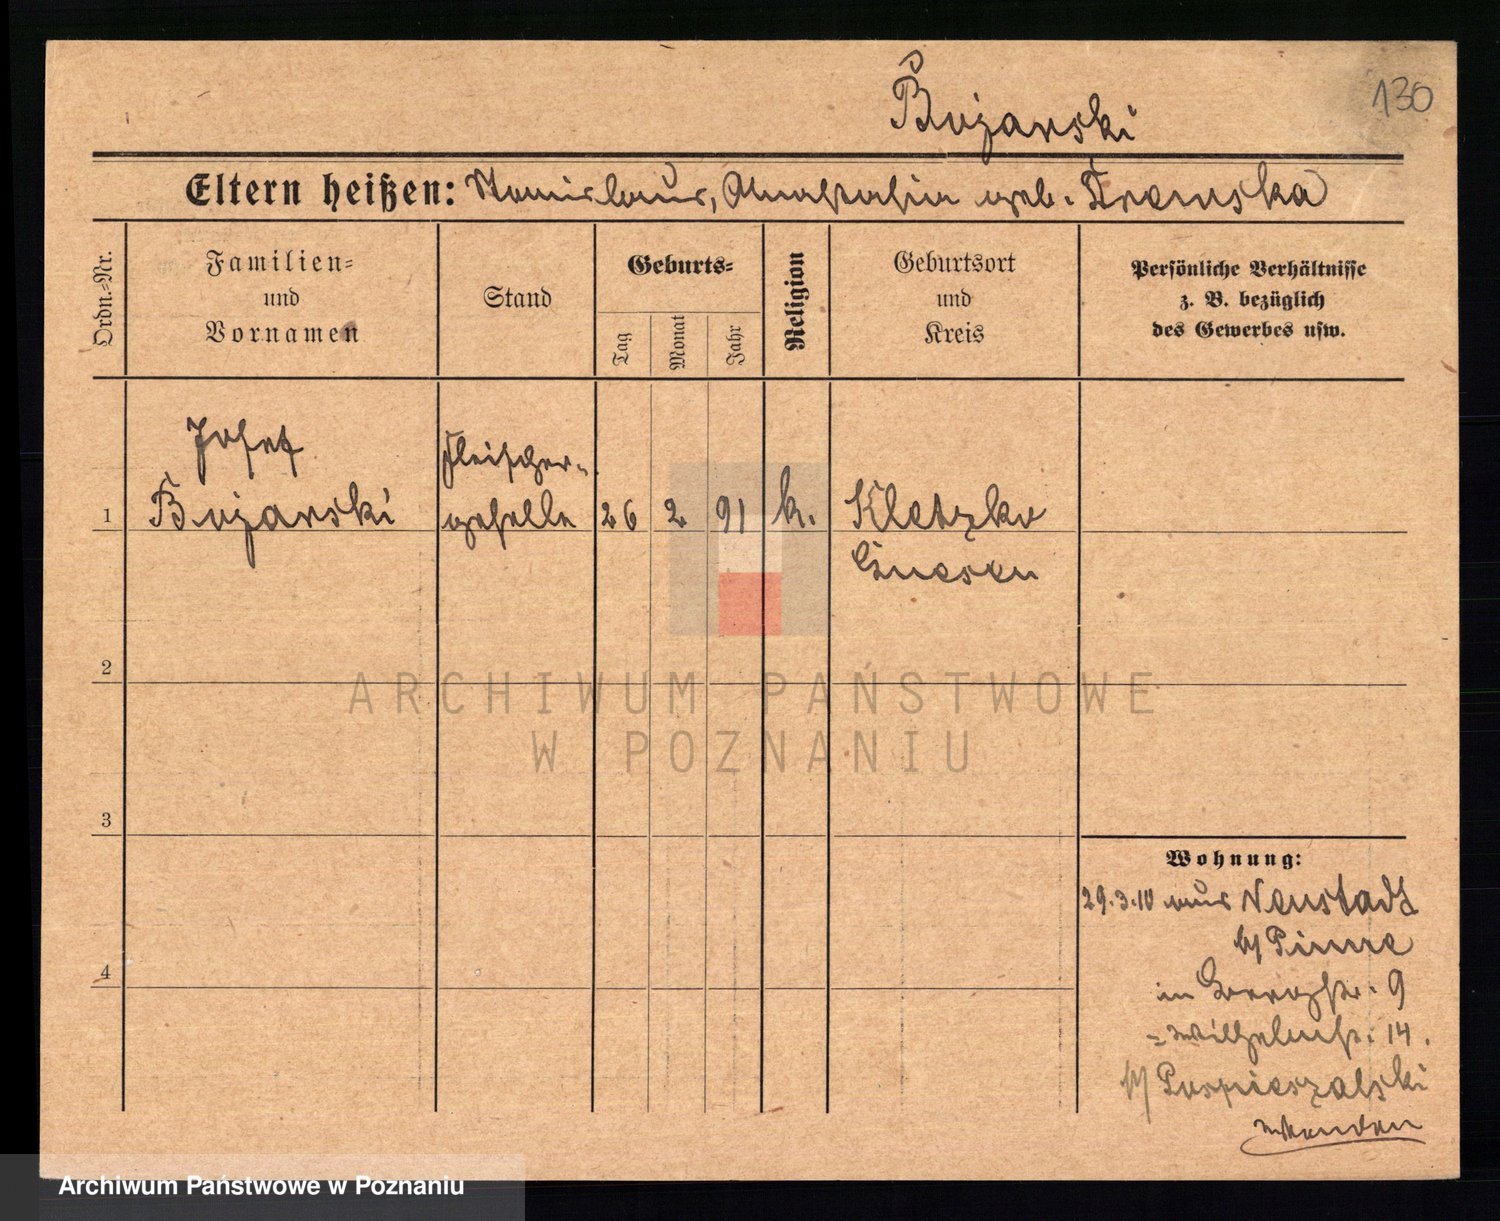 130
Bojarski
Eltern heißen: Stanislaus, Anastasia geb. Dremska
Ordn.-Nr.
Familien-
und
Vornamen
Stand
Geburts-
Tag
Monat
Jahr
Religion
Geburtsort
und
Kreis
Persönliche Verhältnisse
z. B. bezüglich
des Gewerbes usw.
Josef
Bojarski
Fleischer-
geselle
1
26
2
91
k.
Kletzko
Gnesen
2
3
4
Wohnung:
29.3.10 aus Neustadt
b/ Pinne
in 9
= Wilhelmstr. 14.
b/ Pospieszalski
wenden
ARCHIWUM PAŃSTWOWE
W POZNANIU
Archiwum Państwowe w Poznaniu